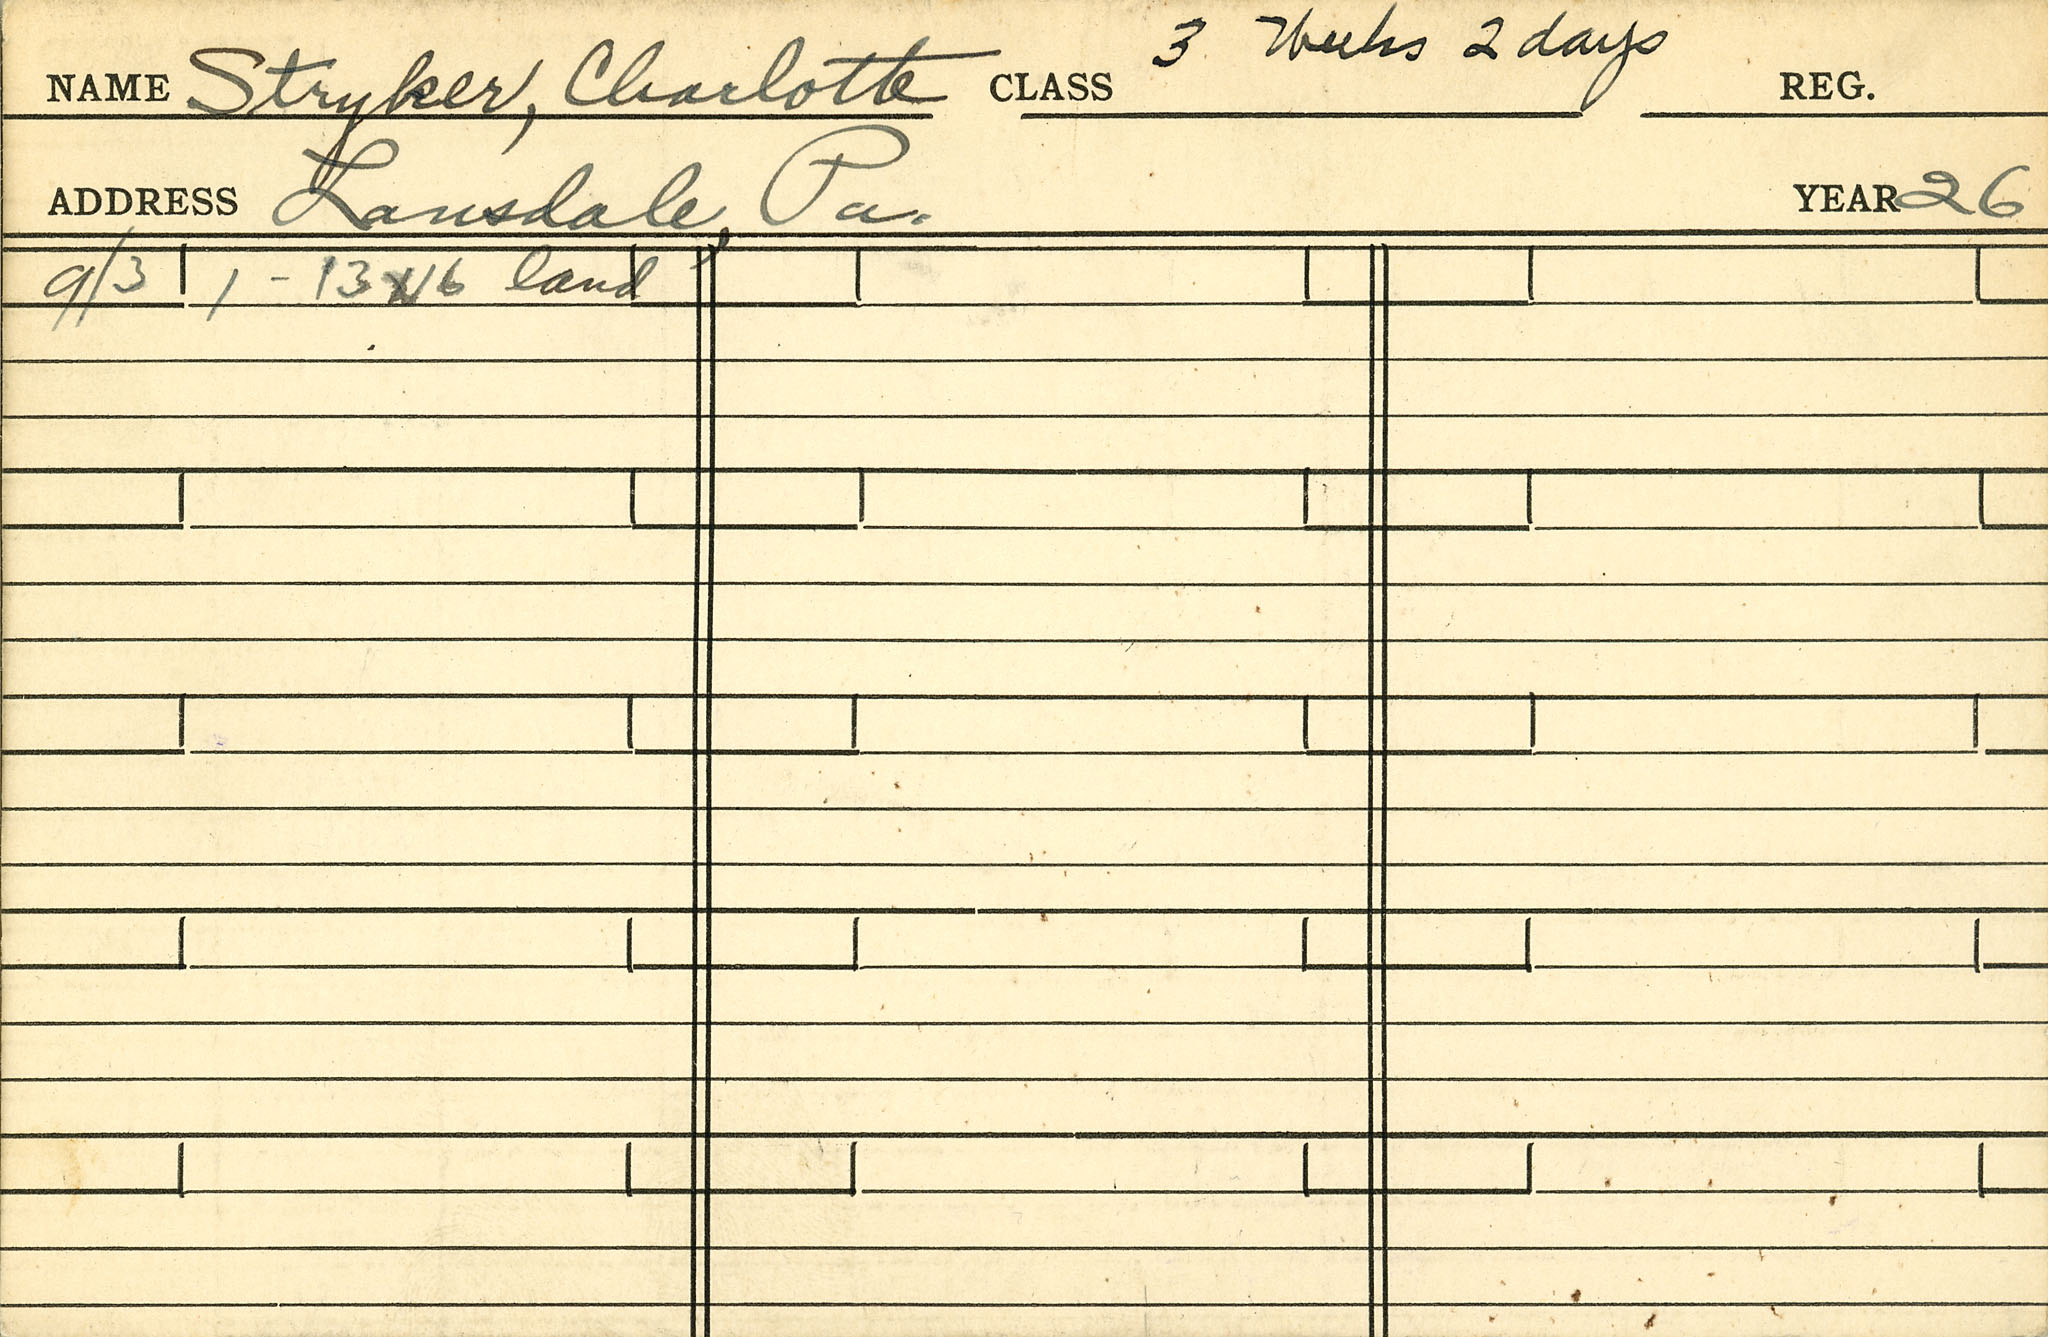 NAME Stryker, Charlotte CLASS 3 Weeks 2 days REG.
ADDRESS Lansdale, Pa. YEAR 26
9/3 1 - 13 x 16 land